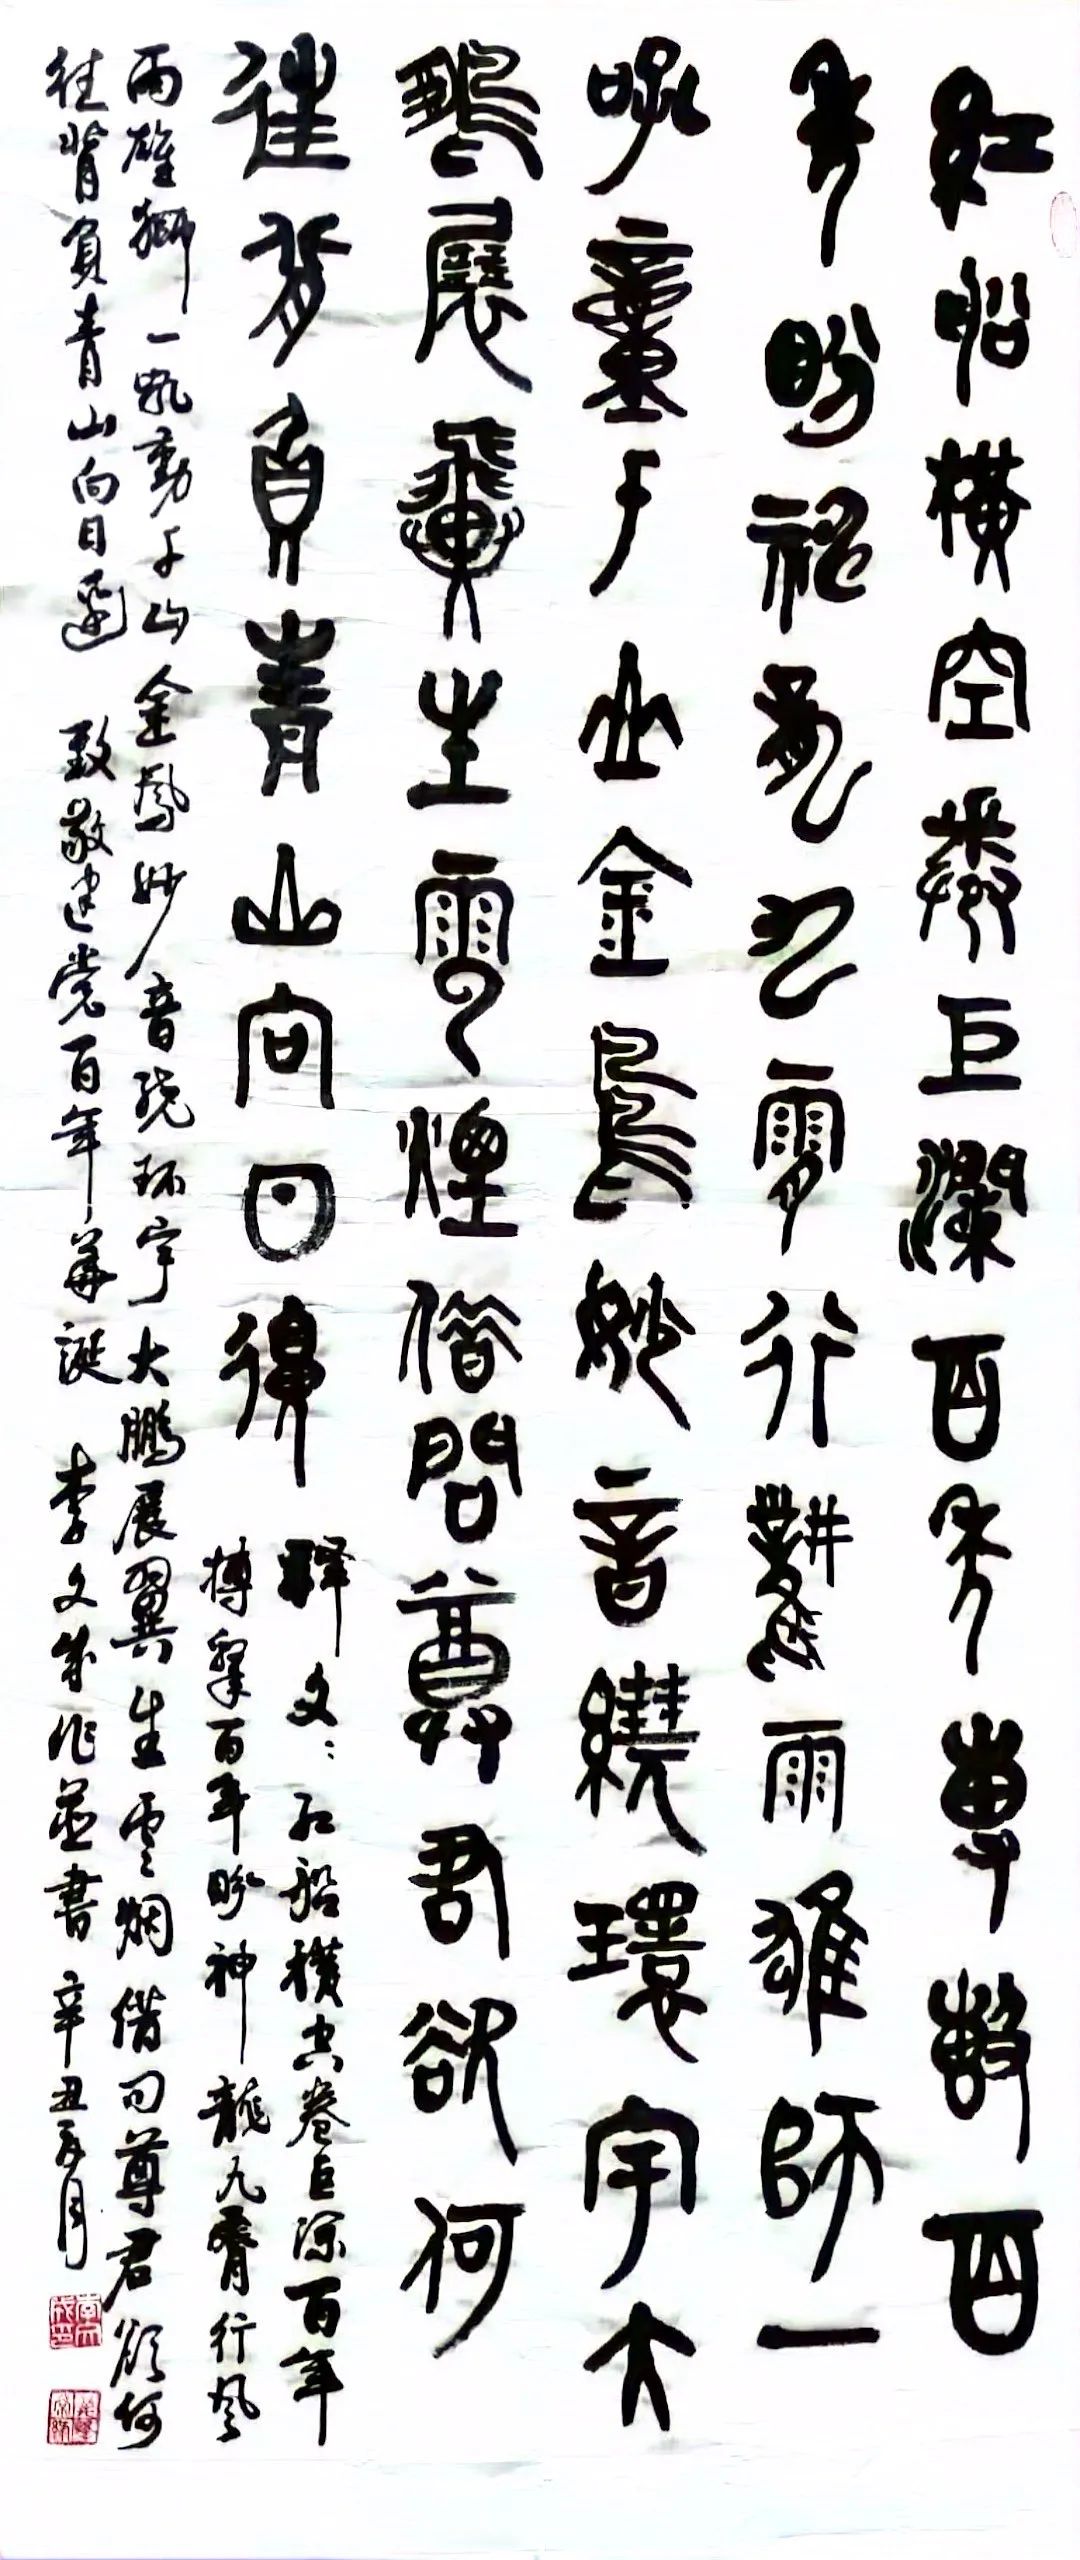 紅船橫空卷巨瀾百年專擊百
年盼神龍九霄行風雨雄師一
吼童千山金鳳妙音繞環宇大
鵬展翼生雲煙借問尊君欲何
往背負青山向日還
释文：红船横空卷巨澜百年
搏擊百年盼神龍九霄行风
雨雄獅一吼動千山金鳳妙音绕环宇大鵬展翼生雲烟借问尊君欲何
往背負青山向日還 致敬建党百年華誕 李文成作並書 辛丑五月